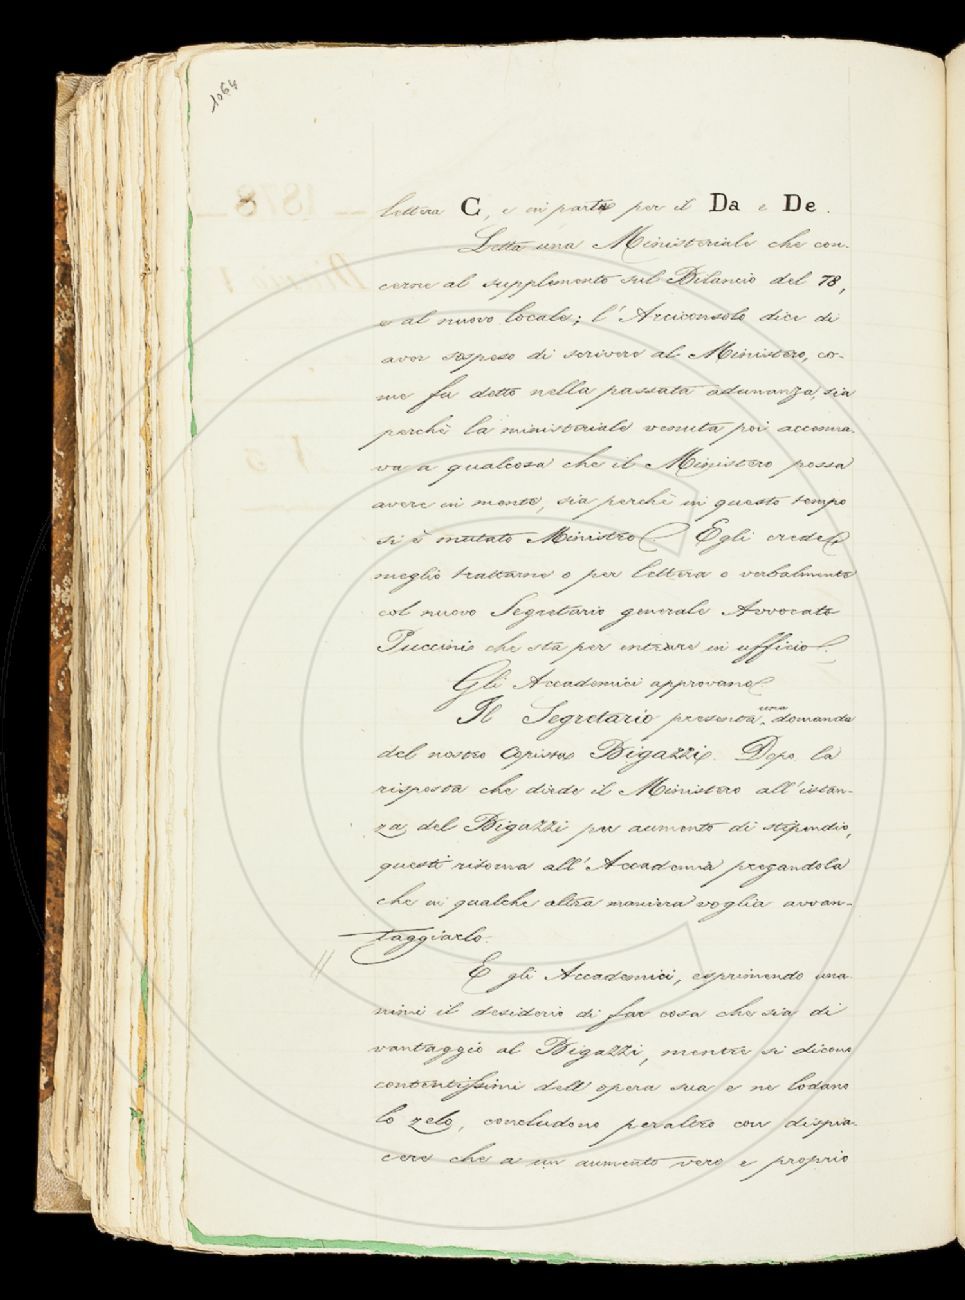 1064
lettera C, e in parte per il Da e De.
Letta una Ministeriale che con-
cerne al supplemento sul Bilancio del 78,
e al nuovo locale; l'Arciconsolo dice di
aver sospeso di scrivere al Ministero, co-
me fu detto nella passata adunanza, sia
perchè la ministeriale venuta poi accenna-
va a qualcosa che il Ministero possa
avere in mente, sia perchè in questo tempo
si è mutato Ministro. Egli crede
meglio trattarne o per lettera o verbalmente
col nuovo Segretario generale Avvocato
Puccini che sta per entrare in ufficio.
Gli Accademici approvano
Il Segretario presenta una domanda
del nostro Copista Bigazzi. Dopo la
risposta che diede il Ministero all'istan-
za del Bigazzi per aumento di stipendio,
questi ritorna all'Accademia pregandola
che in qualche altra maniera voglia avvan-
taggiarlo.
E gli Accademici, esprimendo una-
nimi il desiderio di far cosa che sia di
vantaggio al Bigazzi, mentre si dicono
contentissimi dell'opera sua e ne lodano
lo zelo, concludono peraltro con dispia-
cere che a un aumento vero e proprio